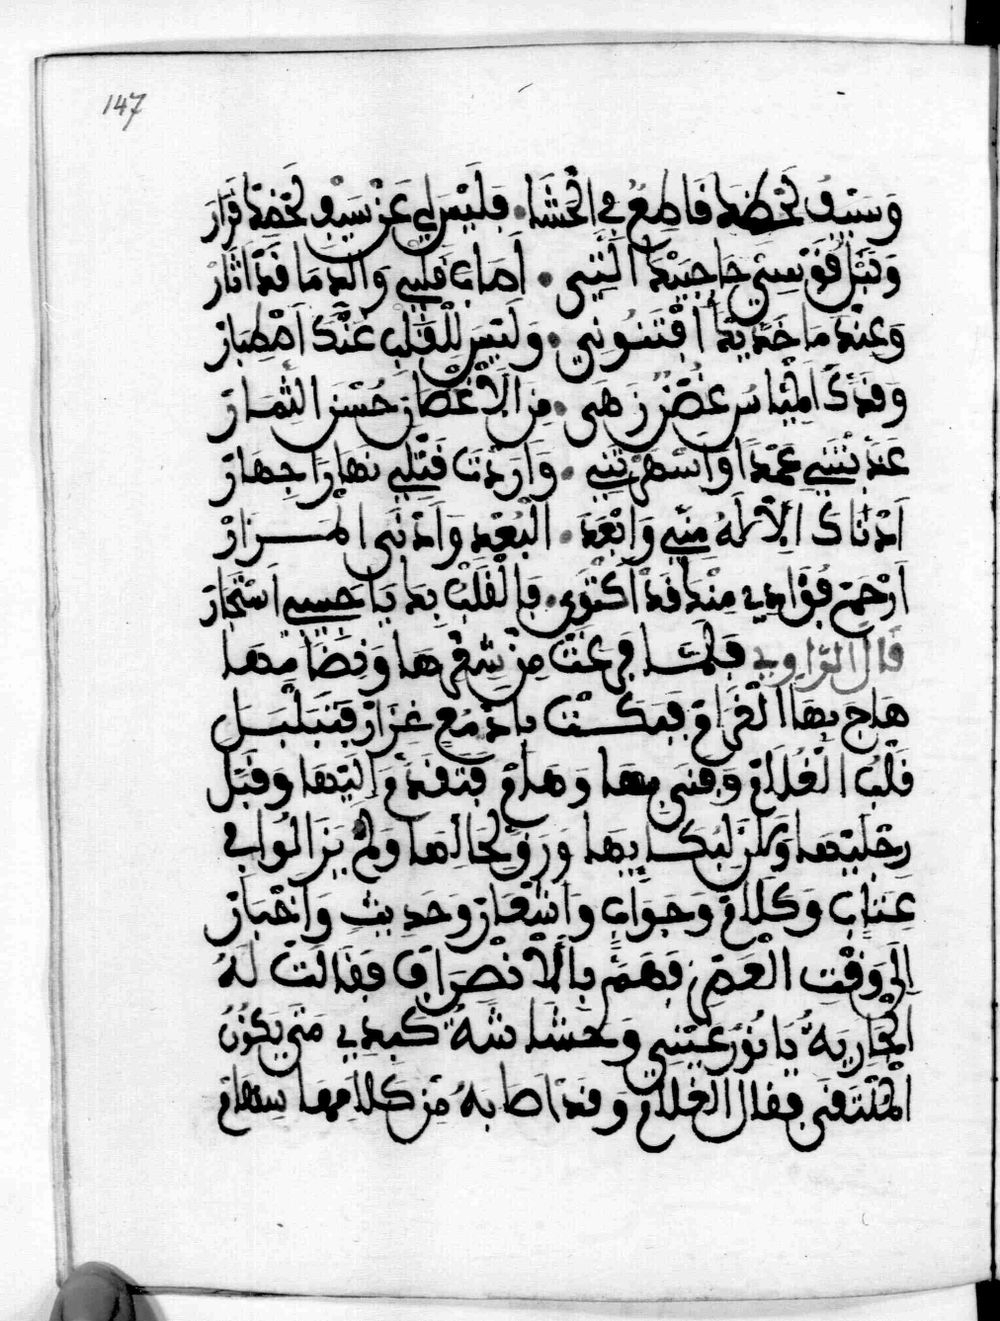 147
وَسَيْفُ لَحْظِهِ قَاطِعٌ فِي الْحَشَا . فَلَيْسَ لِي عَنْ سَيْفِ لَحْظِهِ فَرَارْ
وَنَبْلُ قَوْسَيْ حَاجِبَيْهِ الَّتِي . أَصَابَ قَلْبِي وَالْهَ مَا قَدْ أَثَارْ
وَعِنْدَمَا خَدَّيْهِ أَفْتَنُونِي . وَلَيْسَ لِلْقَلْبِ عَنْكَ اَصْطِبَارْ
وَقَدُّكَ الْمَيَّاسُ غُصْنٌ زَهَى . مِنَ الْأَغْصَانِ حُسْنَ الثِّمَارْ
عَذَّبْتَنِي عَمْدًا وَاَسْهَرْتَنِي . وَاَرَدْتَ قَتْلِي نَهَارًا جِهَارْ
اَدْنَاكَ الْإِلَهُ مِنِّي وَاَبْعَدَ . الْبُعْدَ وَاَدْنَى الْمَزَارْ
اَرْحَمْ فُؤَادِي مِنْهُ قَدْ اَكْتَوَى . فَالْقَلْبُ بِهِ يَا حَبِيبِي اَسْتَجَارْ
قَالَ الرَّاوِي فَلَمَّا فَرَغَتْ مِنْ شِعْرِهَا وَنِظَامِهَا
هَاجَ بِهَا الْغَرَامْ فَبَكَتْ بِاَدْمُعٍ غِزَارْ فَتَبَلْبَلَ
قَلْبُ الْغُلَامْ وَفَنِيَ بِهَا وَهَامْ فَتَقَدَّمَ إِلَيْهَا وَقَبَّلَ
رِجْلَيْهَا وَحَنَّ لِبُكَايِهَا وَرَقَّ لِحَالِهَا وَلَمْ يَزَالُوا فِي
عِتَابٍ وَكَلَامْ وَجَوَابٍ وَاَشْعَارْ وَحَدِيثٍ وَاَخْبَارْ
اِلَى وَقْتِ الْعَصْرِ فَهَمَّ بِالْأَنْصِرَافِ فَقَالَتْ لَهُ
الْجَارِيَةُ يَا نُورَ عَيْنِي وَحُشَاشَةُ كَبِدِي مَتَى يَكُونُ
الْمُلْتَقَى فَقَالَ الْغُلَامْ وَقَدْ اَصَابَهُ مِنْ كَلَامِهَا سِهَامْ